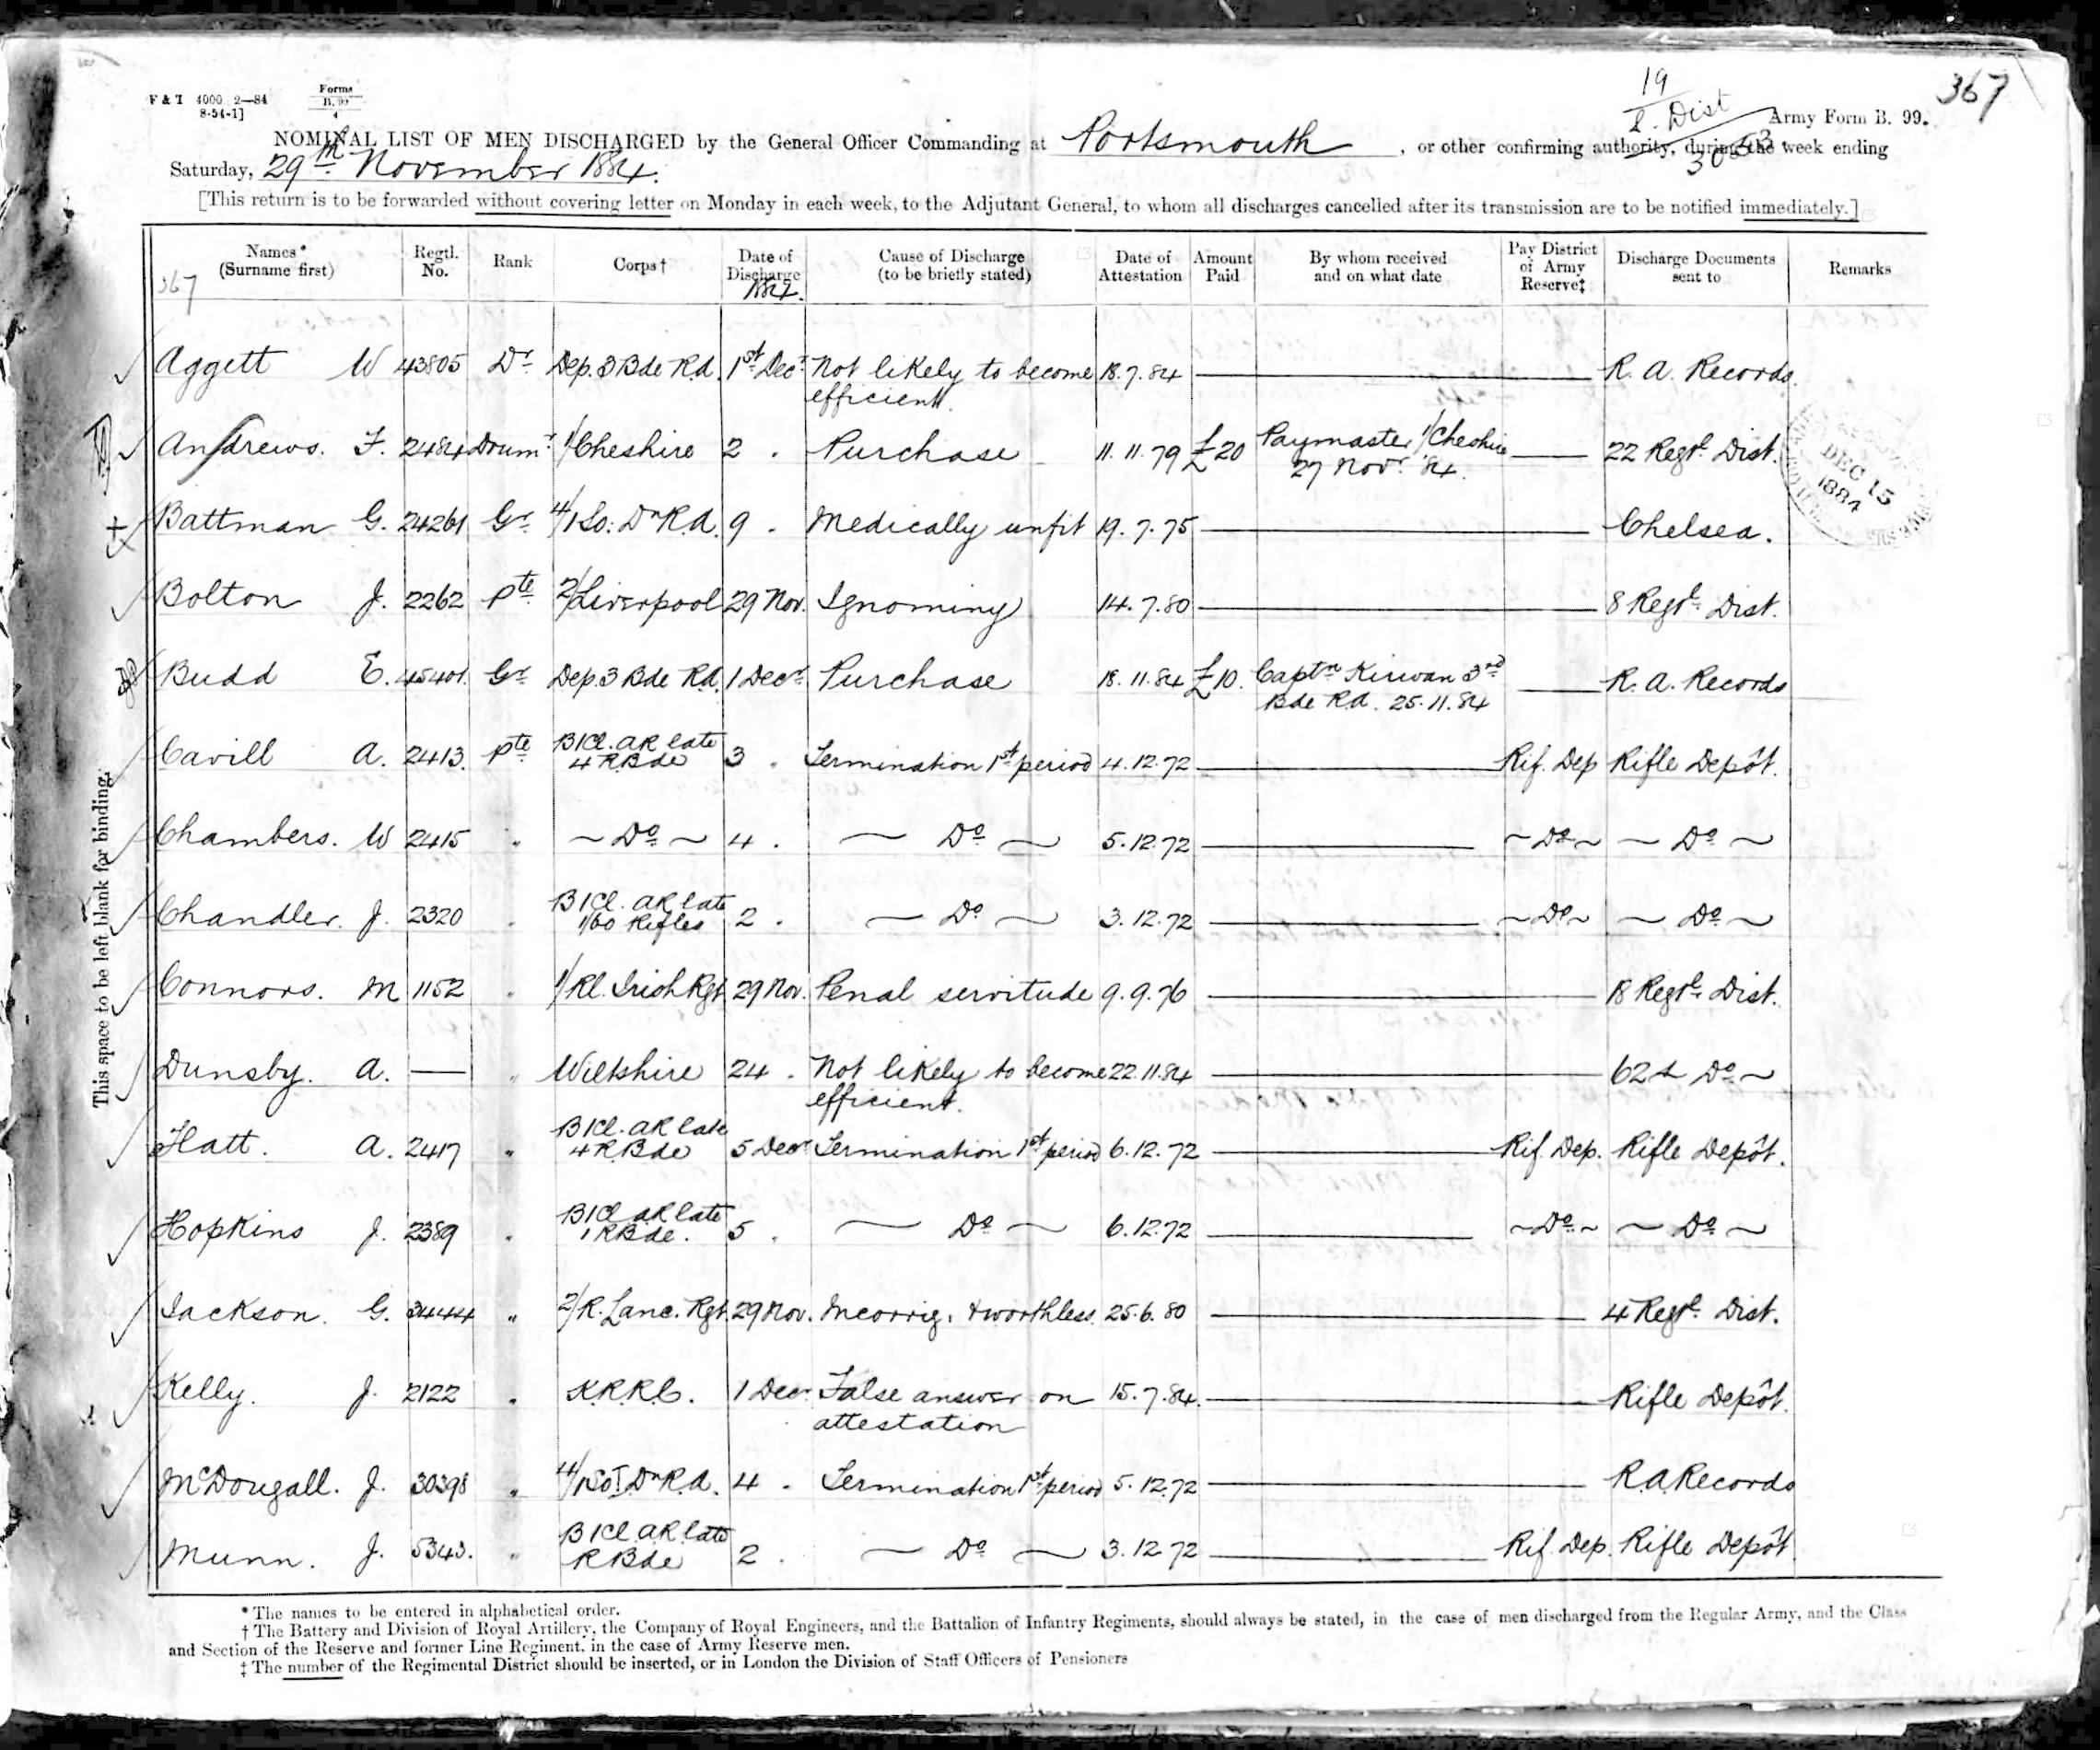 F & T 4000 2—84
8-54-1]
Forms
B. 99
4
19
S. Dist
3053
367
Army Form B. 99.
NOMINAL LIST OF MEN DISCHARGED by the General Officer Commanding at Portsmouth, or other confirming authority, during the week ending
Saturday, 29th November 1884.
[This return is to be forwarded without covering letter on Monday in each week, to the Adjutant General, to whom all discharges cancelled after its transmission are to be notified immediately.]
Names* (Surname first) Regtl. No. Rank Corps† Date of Discharge 1884. Cause of Discharge (to be briefly stated) Date of Attestation Amount Paid By whom received and on what date Pay District of Army Reserve‡ Discharge Documents sent to Remarks
367
Aggett W 43805 Dr Dep. 3 Bde R.A. 1st Decr Not likely to become efficient. 18.7.84 R. A. Records.
Andrews. F. 2484 Drumr 1/Cheshire 2 . Purchase 11.11.79 £20 Paymaster 1/Cheshire 27 Novr '84. 22 Regtl Dist.
Battman G. 24261 Gr 4/1 So: Dn R.A. 9 . Medically unfit 19.7.75 Chelsea.
Bolton J. 2262 Pte 2/Liverpool 29 Nov. Ignominy 14.7.80 8 Regtl Dist.
Budd E. 45401. Gr Dep. 3 Bde R.A. 1 Decr Purchase 18.11.84 £10. Captn Kirwan 3rd Bde R.A. 25.11.84 R. A. Records
Cavill A. 2413. Pte B 1 Cl. AR late 4 R.Bde 3 . Termination 1st period 4.12.72 Rif. Dep Rifle Depôt.
Chambers. W 2415 " ~ Do ~ 4 . ~ Do ~ 5.12.72 ~ Do ~ ~ Do ~
Chandler. J. 2320 " B 1 Cl. AR late 1/60 Rifles 2 . ~ Do ~ 3.12.72 ~ Do ~ ~ Do ~
Connors. M 1152 " 1/Rl. Irish Rgt 29 Nov. Penal servitude 9.9.76 18 Regtl Dist.
Dunsby. A. — " Wiltshire 24 . Not likely to become efficient. 22.11.84 62 ~ Do ~
Hatt. A. 2417 " B 1 Cl. AR late 4 R.Bde 5 Decr Termination 1st period 6.12.72 Rif. Dep. Rifle Depôt.
Hopkins J. 2389 " B 1 Cl AR late 1 R Bde. 5 . ~ Do ~ 6.12.72 ~ Do ~ ~ Do ~
Jackson. G. 3444 " 2/R. Lanc. Rgt 29 Nov. Incorrig. & worthless. 25.6.80 4 Regtl Dist.
Kelly. J. 2122 " K.R.R.C. 1 Decr False answer on attestation 15.7.84. Rifle Depôt.
McDougall. J. 30398 " 4/1 So. Dn R.A. 4 . Termination 1st period 5.12.72 R.A. Records
Munn. J. 5343. " B 1 Cl. AR late R Bde 2 . ~ Do ~ 3.12.72 Rif. Dep. Rifle Depôt
DEC 15
1884
This space to be left blank for binding.
* The names to be entered in alphabetical order.
† The Battery and Division of Royal Artillery, the Company of Royal Engineers, and the Battalion of Infantry Regiments, should always be stated, in the case of men discharged from the Regular Army, and the Class
and Section of the Reserve and former Line Regiment, in the case of Army Reserve men.
‡ The number of the Regimental District should be inserted, or in London the Division of Staff Officers of Pensioners